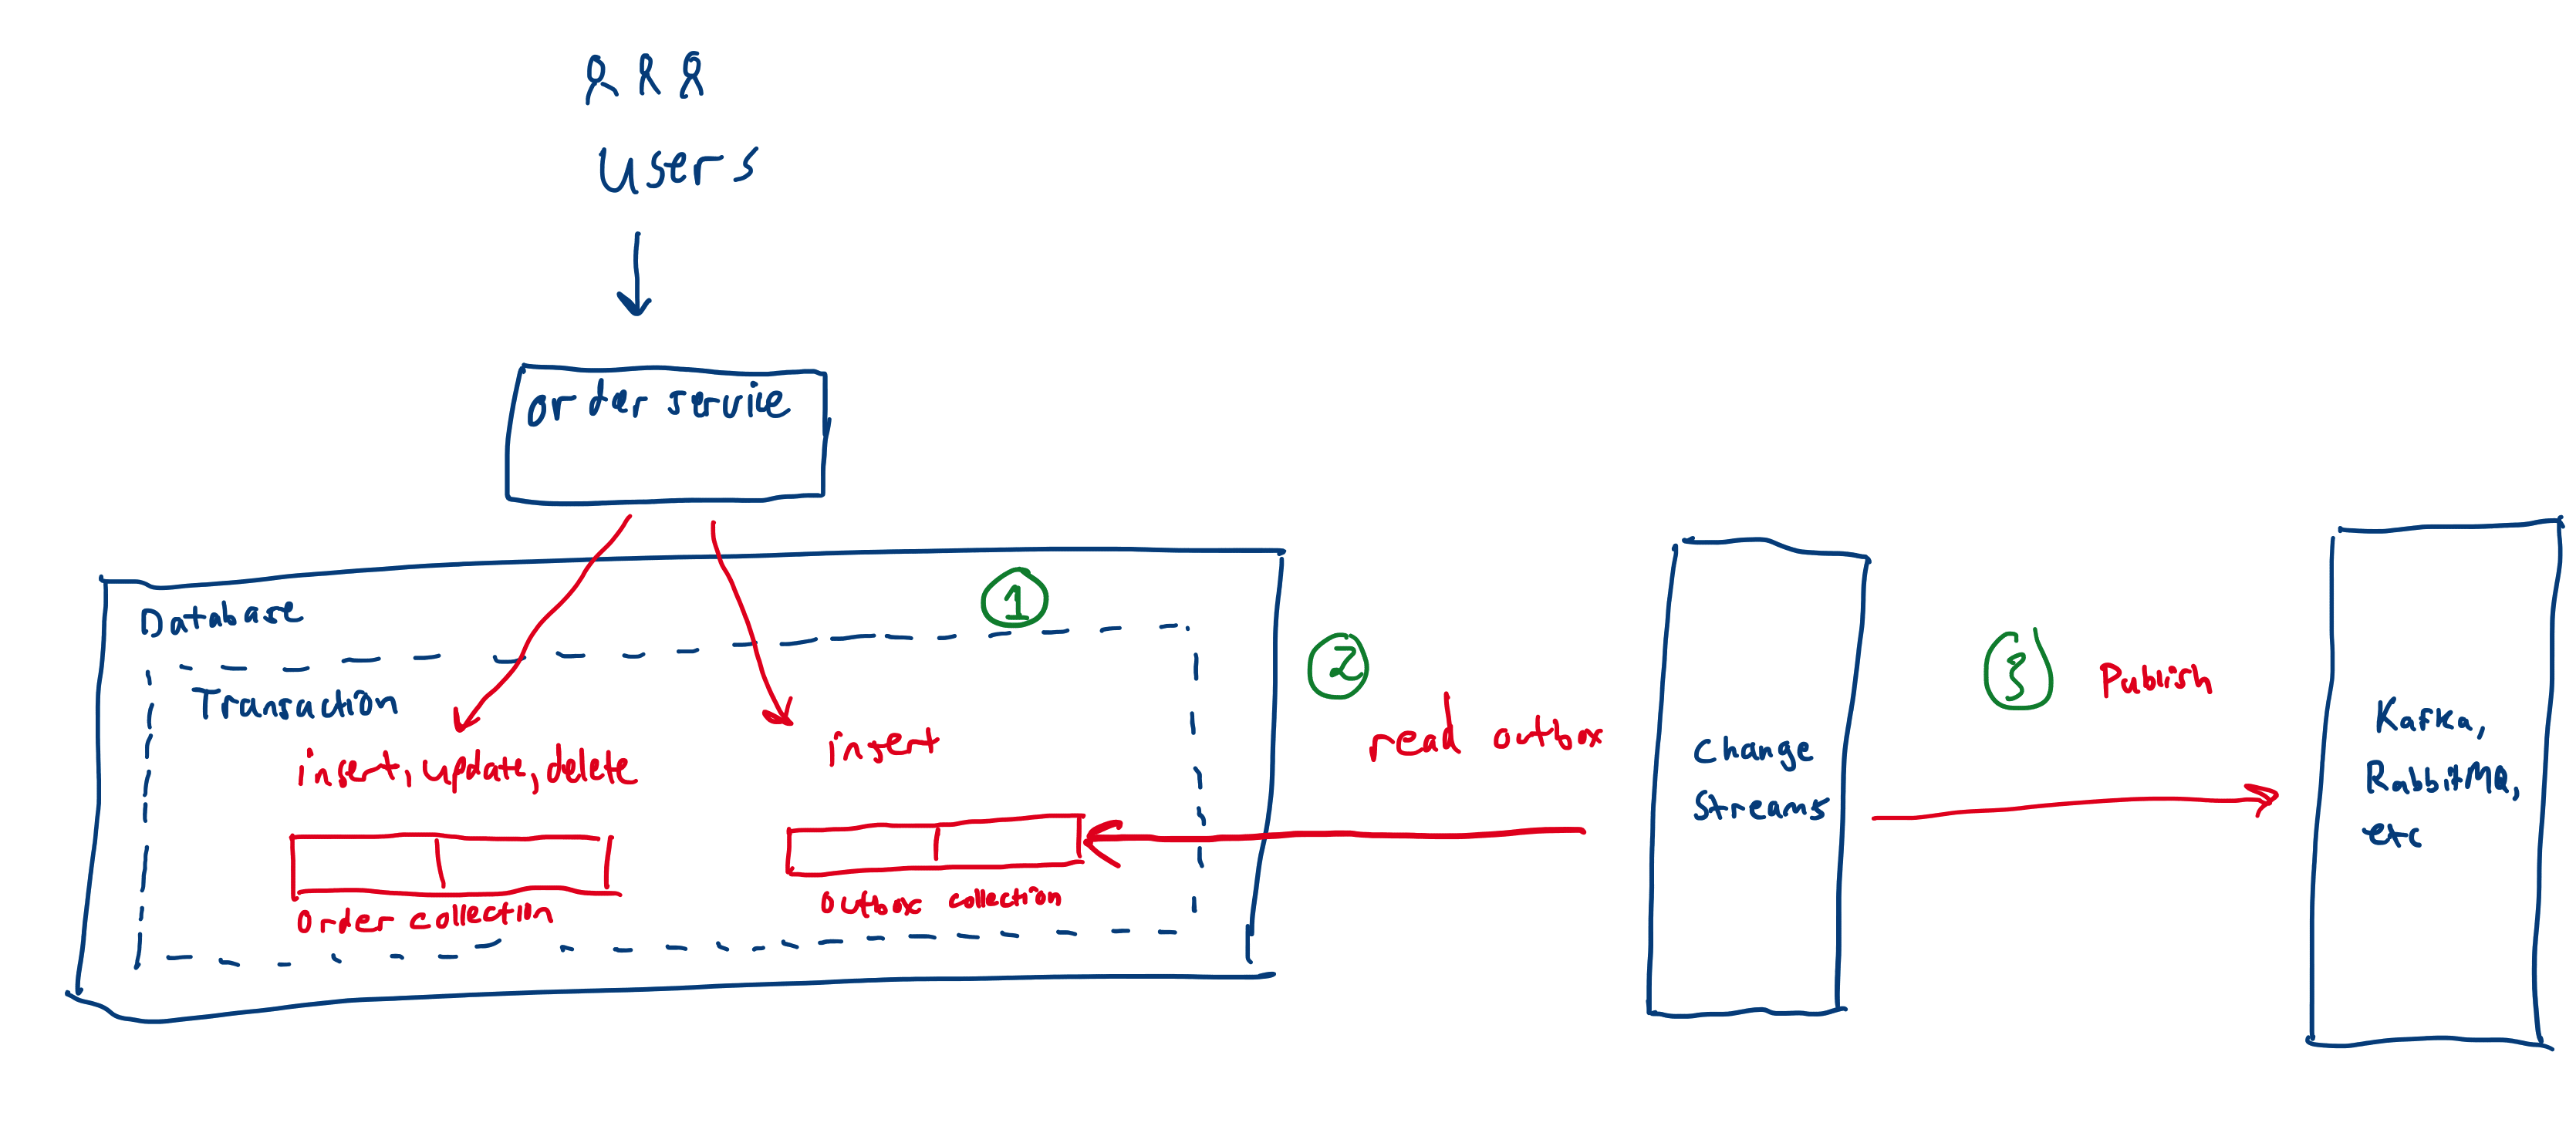 users
order service
Database
1
Transaction
insert, update, delete
insert
order collection
outbox collection
2
read outbox
Change
Streams
3
Publish
Kafka,
RabbitMQ,
etc